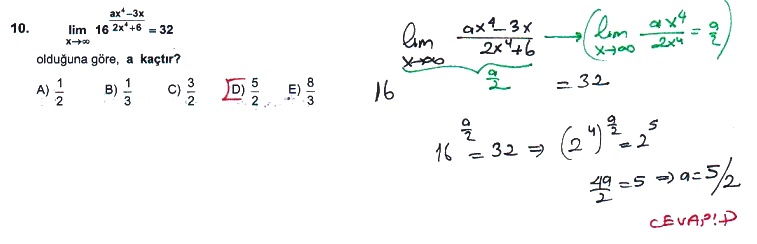 10. lim x→∞ 16^((ax⁴−3x)/(2x⁴+6)) = 32
olduğuna göre, a kaçtır?
A) 1/2 B) 1/3 C) 3/2 D) 5/2 E) 8/3
16^(lim x→∞ (ax⁴−3x)/(2x⁴+6)) = 32 → (lim x→∞ ax⁴/2x⁴ = a/2)
a/2
16^(a/2) = 32 ⇒ (2⁴)^(a/2) = 2⁵
4a/2 = 5 ⇒ a = 5/2
CEVAP: D